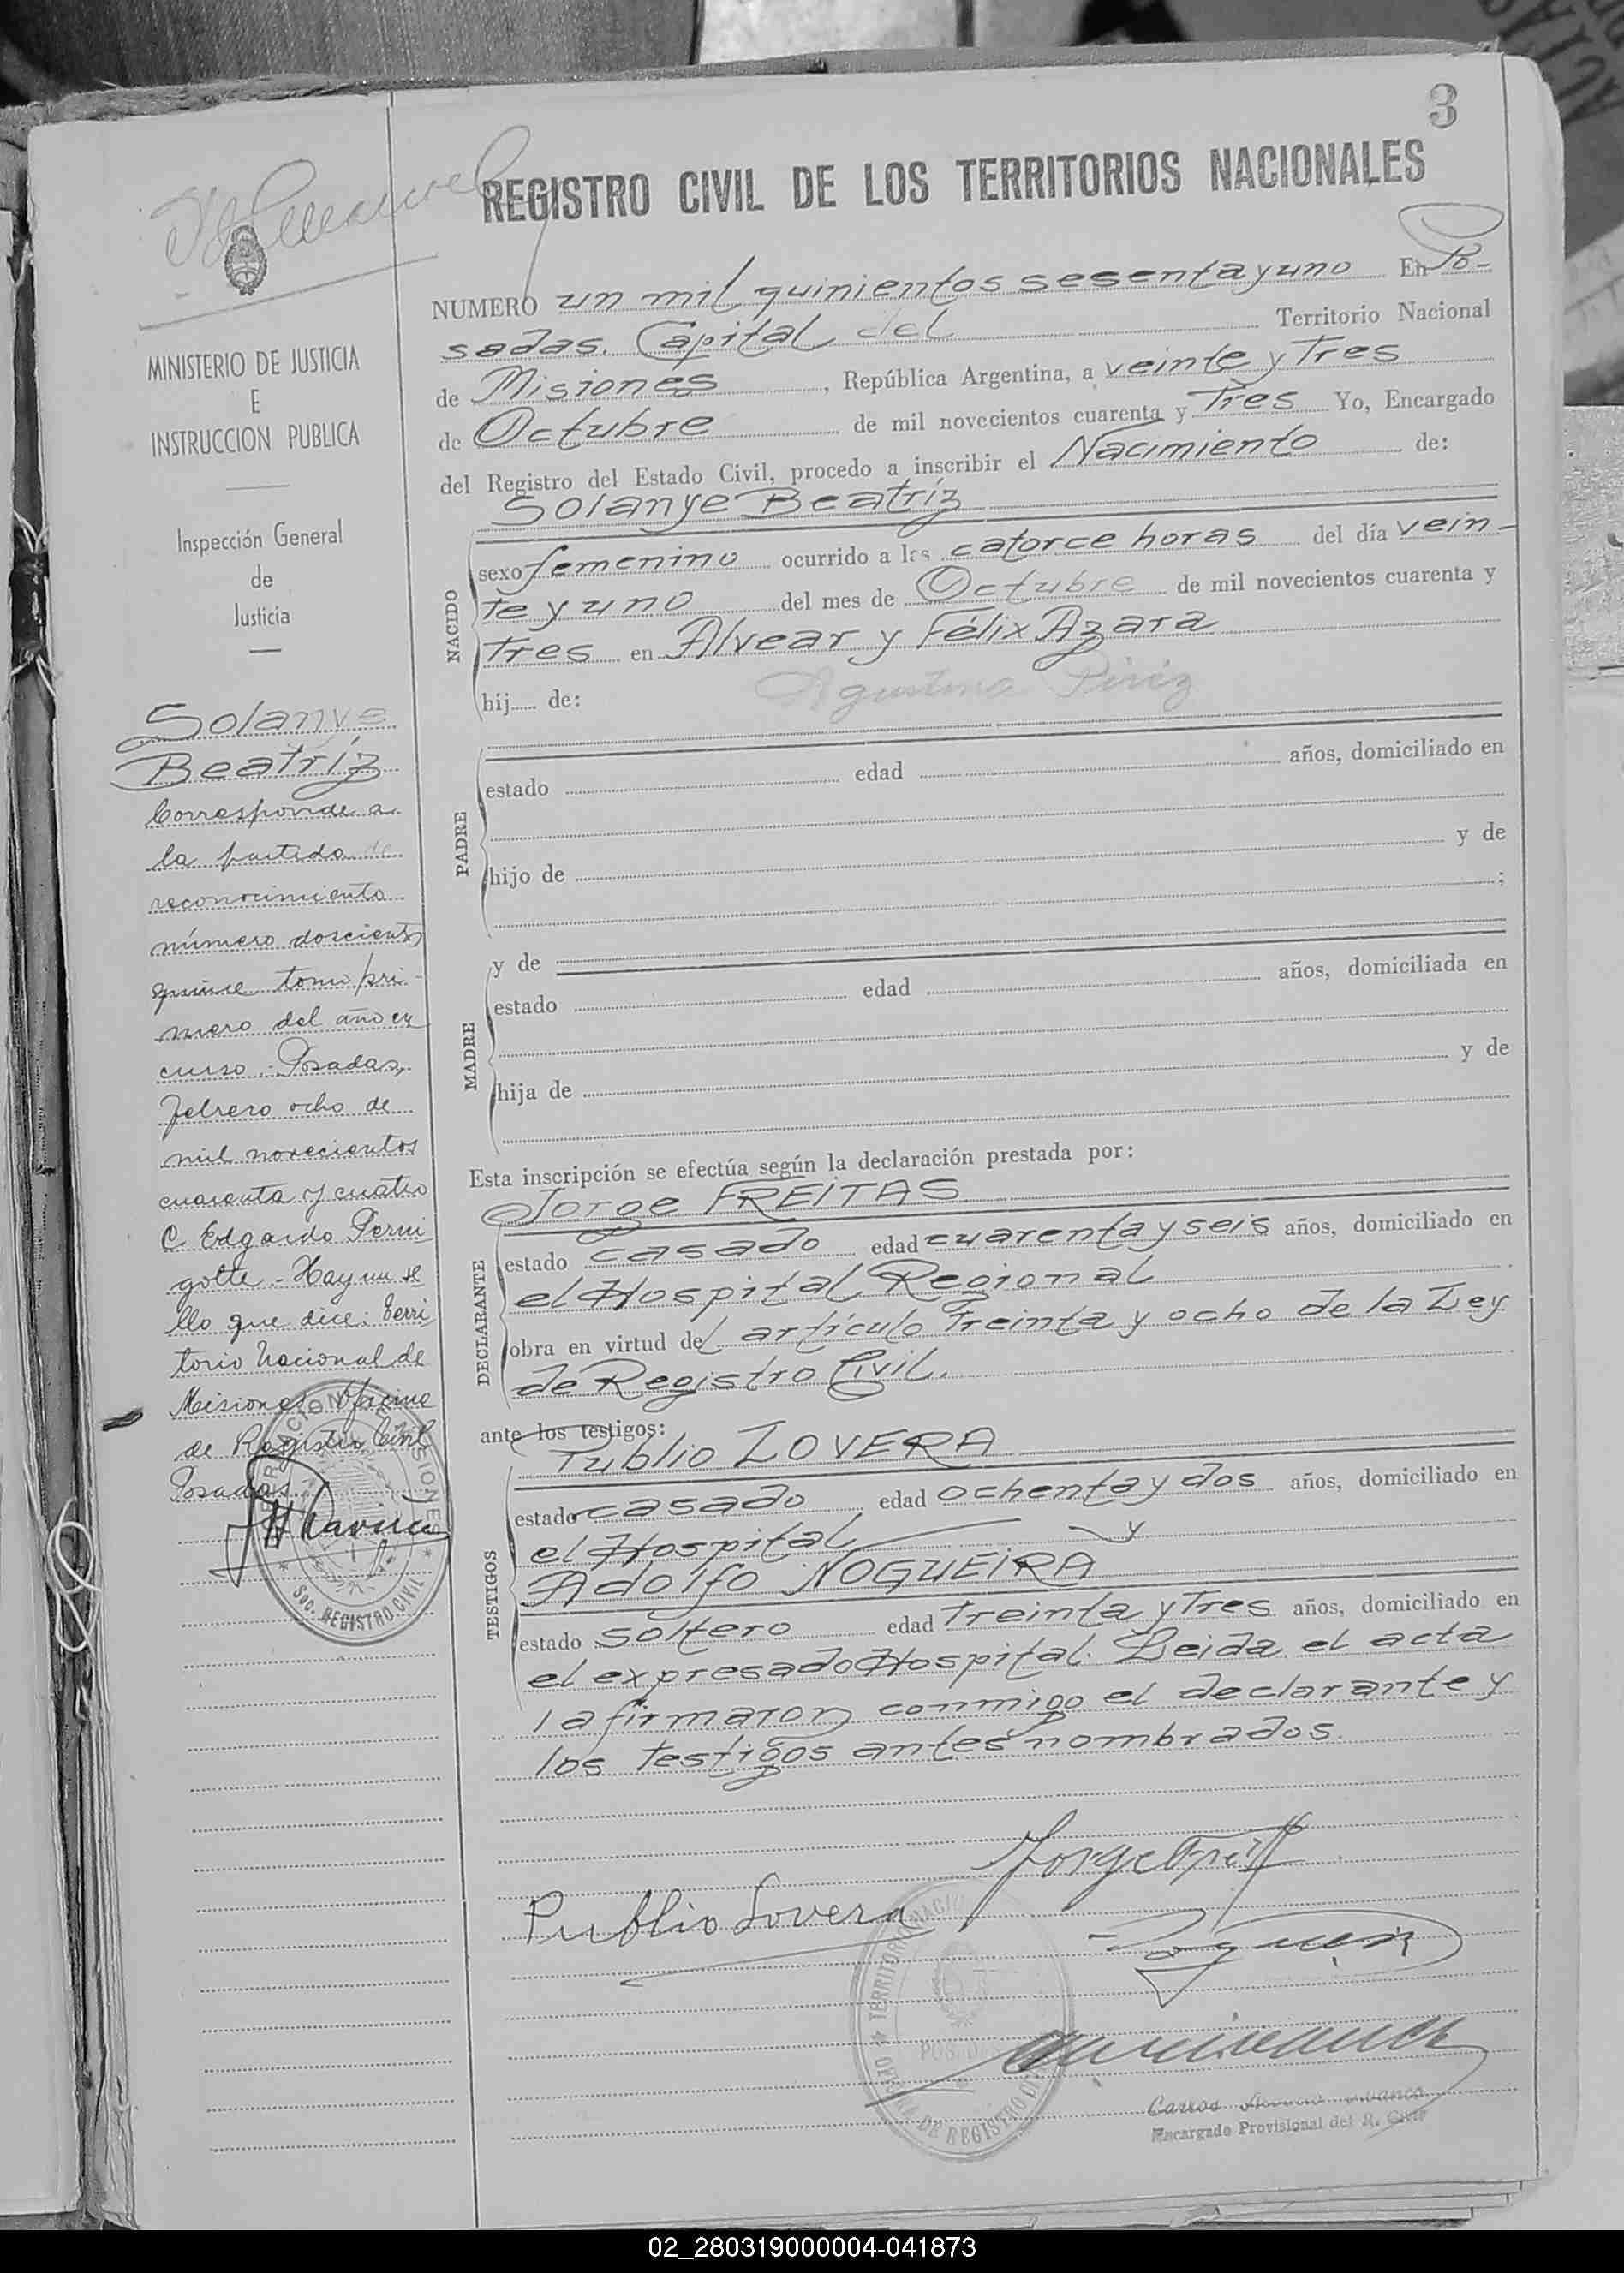 3
REGISTRO CIVIL DE LOS TERRITORIOS NACIONALES
NUMERO un mil quinientos sesenta y uno En Po-
sadas. Capital del Territorio Nacional
de Misiones, República Argentina, a veinte y Tres
de Octubre de mil novecientos cuarenta y Tres Yo, Encargado
del Registro del Estado Civil, procedo a inscribir el Nacimiento de:
Solanye Beatriz
NACIDO
sexo femenino ocurrido a las catorce horas del día vein-
te y uno del mes de Octubre de mil novecientos cuarenta y
tres en Alvear y Félix Azara
hij de: Agustina Piriz
PADRE
estado edad años, domiciliado en
hijo de y de
;
y de
MADRE
estado edad años, domiciliada en
hija de y de
Esta inscripción se efectúa según la declaración prestada por:
Jorge FREITAS
DECLARANTE
estado casado edad cuarenta y seis años, domiciliado en
el Hospital Regional
obra en virtud del artículo Treinta y ocho de la Ley
de Registro Civil.
ante los testigos:
Publio LOVERA
TESTIGOS
estado casado edad ochenta y dos años, domiciliado en
el Hospital y
Adolfo NOGUEIRA
estado soltero edad Treinta y Tres años, domiciliado en
el expresado Hospital. Leida el acta
la firmaron conmigo el declarante y
los testigos antes nombrados.
Publio Lovera
TERRITORIO NACIONAL
DE REGISTRO CIVIL
Encargado Provisional del R. Civil
MINISTERIO DE JUSTICIA
E
INSTRUCCION PUBLICA
Inspección General
de
Justicia
Solanye
Beatriz
Corresponde a
la partida de
reconocimiento
número doscientos
quince tomo pri-
mero del año en
curso.- Posadas,
Febrero ocho de
mil novecientos
cuarenta y cuatro
C. Edgardo Perni
gotte - Hay un se
llo que dice: Terri
torio Nacional de
Misiones Oficina
de Registro Civil
Posadas
REGISTRO CIVIL
02_280319000004-041873